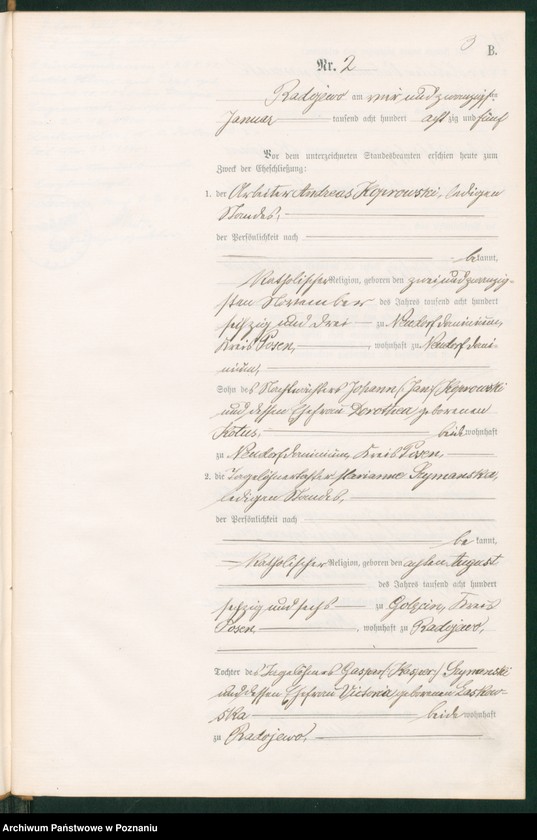 3
B.
Nr. 2
Radojewo am vier und zwanzigsten
Januar tausend acht hundert achtzig und fünf
Vor dem unterzeichneten Standesbeamten erschien heute zum
Zweck der Eheschließung:
1. der Arbeiter Andreas Koprowski, ledigen
Standes,
der Persönlichkeit nach
bekannt,
Katholischer Religion, geboren den zwei und zwanzig-
sten November des Jahres tausend acht hundert
sechzig und drei zu Neudorf dominium,
Kreis Posen, wohnhaft zu Neudorf domi-
nium,
Sohn des Nachtwächters Johann /Jan/ Koprowski
und dessen Ehefrau Dorothea geborenen
Kotus, beide wohnhaft
zu Neudorf dominium, Kreis Posen,
2. die Tagelöhnertochter Marianna Szymanska,
ledigen Standes,
der Persönlichkeit nach
bekannt,
Katholischer Religion, geboren den achten August
des Jahres tausend acht hundert
sechzig und sechs zu Golęcin, Kreis
Posen, wohnhaft zu Radojewo,
Tochter des Tagelöhners Gaspar /Kasper/ Szymanski
und dessen Ehefrau Victoria geborenen Laskow-
ska beide wohnhaft
zu Radojewo,
Archiwum Państwowe w Poznaniu